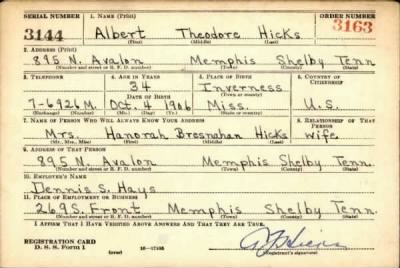 SERIAL NUMBER 1. NAME (Print) ORDER NUMBER
3144 Albert Theodore Hicks 3163
(First) (Middle) (Last)
2. ADDRESS (Print)
895 N. Avalon Memphis Shelby Tenn
(Number and street or R. F. D. number) (Town) (County) (State)
3. TELEPHONE 4. AGE IN YEARS 5. PLACE OF BIRTH 6. COUNTRY OF CITIZENSHIP
34 Inverness
DATE OF BIRTH (Town or county)
7-6926M. Oct. 4 1906 Miss. U.S.
(Exchange) (Number) (Mo.) (Day) (Yr.) (State or country)
7. NAME OF PERSON WHO WILL ALWAYS KNOW YOUR ADDRESS 8. RELATIONSHIP OF THAT PERSON
Mrs. Hanorah Bresnahan Hicks wife
(Mr., Mrs., Miss) (First) (Middle) (Last)
9. ADDRESS OF THAT PERSON
895 N. Avalon Memphis Shelby Tenn.
(Number and street or R. F. D. number) (Town) (County) (State)
10. EMPLOYER'S NAME
Dennis S. Hays
11. PLACE OF EMPLOYMENT OR BUSINESS
269 S. Front Memphis Shelby Tenn.
(Number and street or R. F. D. number) (Town) (County) (State)
I AFFIRM THAT I HAVE VERIFIED ABOVE ANSWERS AND THAT THEY ARE TRUE.
REGISTRATION CARD
D. S. S. Form 1 (over) 16-17105
(Registrant's signature)